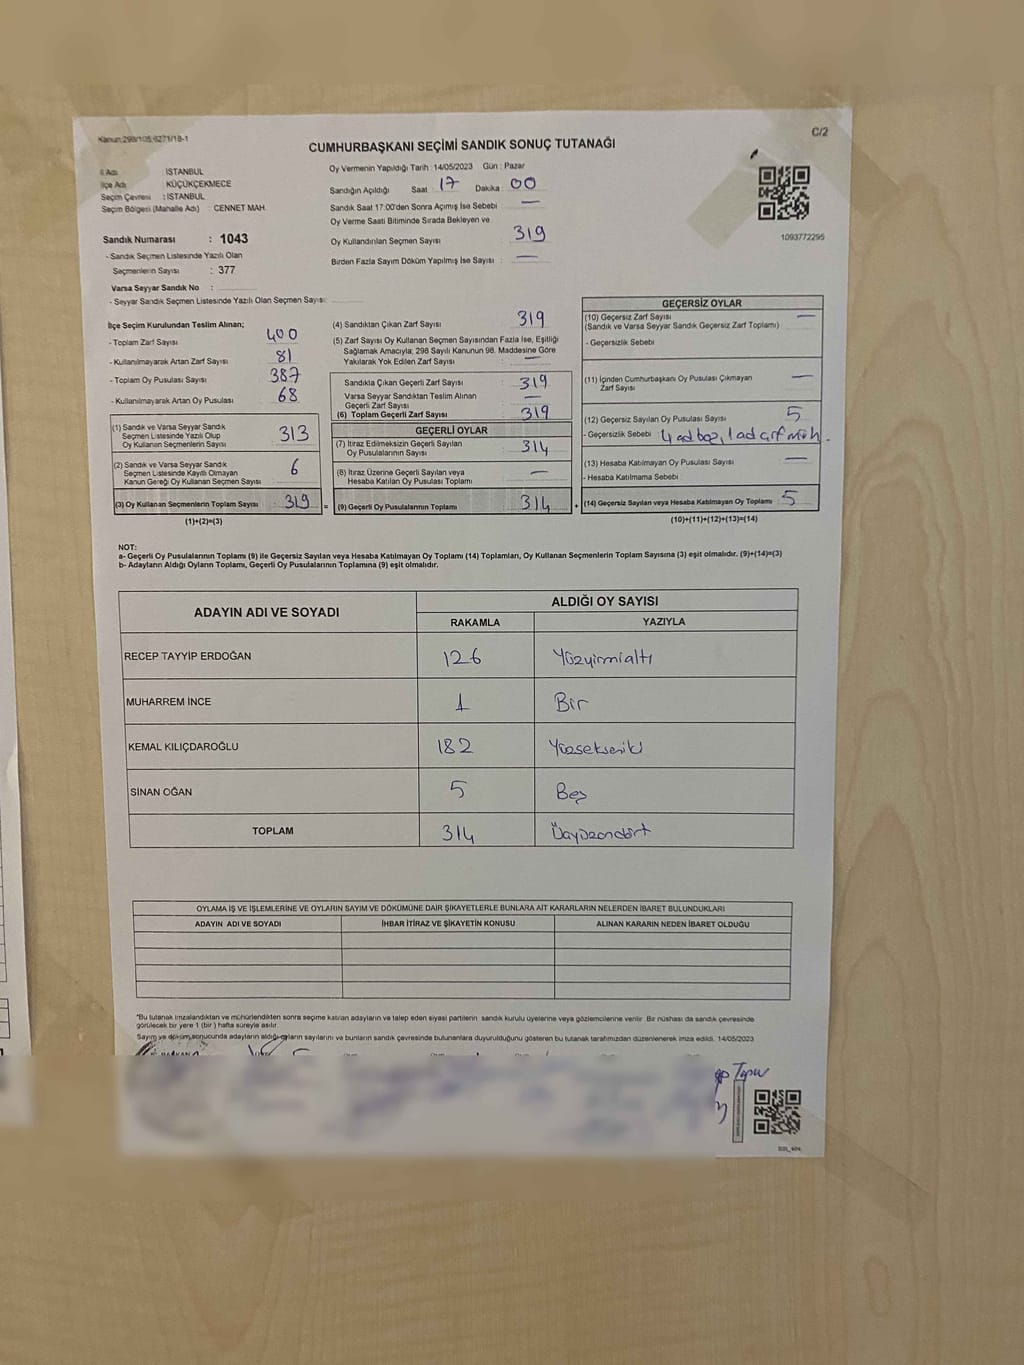 Kanun:298/105,6271/18-1
C/2
CUMHURBAŞKANI SEÇİMİ SANDIK SONUÇ TUTANAĞI
İl Adı : İSTANBUL
İlçe Adı : KÜÇÜKÇEKMECE
Seçim Çevresi : İSTANBUL
Seçim Bölgesi (Mahalle Adı) : CENNET MAH.
Sandık Numarası : 1043
- Sandık Seçmen Listesinde Yazılı Olan
Seçmenlerin Sayısı : 377
Varsa Seyyar Sandık No :
- Seyyar Sandık Seçmen Listesinde Yazılı Olan Seçmen Sayısı:
Oy Vermenin Yapıldığı Tarih :14/05/2023 Gün : Pazar
Sandığın Açıldığı Saat 17 Dakika 00
Sandık Saat 17:00'den Sonra Açımış İse Sebebi —
Oy Verme Saati Bitiminde Sırada Bekleyen ve
Oy Kullandırılan Seçmen Sayısı 319
Birden Fazla Sayım Döküm Yapılmış İse Sayısı : —
1093772295
İlçe Seçim Kurulundan Teslim Alınan;
- Toplam Zarf Sayısı : 400
- Kullanılmayarak Artan Zarf Sayısı : 81
- Toplam Oy Pusulası Sayısı : 387
- Kullanılmayarak Artan Oy Pusulası : 68
(1) Sandık ve Varsa Seyyar Sandık
Seçmen Listesinde Yazılı Olup
Oy Kullanan Seçmenlerin Sayısı : 313
(2) Sandık ve Varsa Seyyar Sandık
Seçmen Listesinde Kayıtlı Olmayan
Kanun Gereği Oy Kullanan Seçmen Sayısı : 6
(3) Oy Kullanan Seçmenlerin Toplam Sayısı : 319
(1)+(2)=(3)
(4) Sandıktan Çıkan Zarf Sayısı : 319
(5) Zarf Sayısı Oy Kullanan Seçmen Sayısından Fazla İse, Eşitliği
Sağlamak Amacıyla; 298 Sayılı Kanunun 98. Maddesine Göre
Yakılarak Yok Edilen Zarf Sayısı : —
Sandıkla Çıkan Geçerli Zarf Sayısı : 319
Varsa Seyyar Sandıktan Teslim Alınan
Geçerli Zarf Sayısı : —
(6) Toplam Geçerli Zarf Sayısı : 319
GEÇERLİ OYLAR
(7) İtiraz Edilmeksizin Geçerli Sayılan
Oy Pusulalarının Sayısı : 314
(8) İtiraz Üzerine Geçerli Sayılan veya
Hesaba Katılan Oy Pusulası Toplamı : —
= (9) Geçerli Oy Pusulalarının Toplamı : 314 +
GEÇERSİZ OYLAR
(10) Geçersiz Zarf Sayısı : —
(Sandık ve Varsa Seyyar Sandık Geçersiz Zarf Toplamı)
- Geçersizlik Sebebi
(11) İçinden Cumhurbaşkanı Oy Pusulası Çıkmayan
Zarf Sayısı : —
(12) Geçersiz Sayılan Oy Pusulası Sayısı : 5
- Geçersizlik Sebebi 4 ad boş, 1 ad çift müh.
(13) Hesaba Katılmayan Oy Pusulası Sayısı : —
- Hesaba Katılmama Sebebi
(14) Geçersiz Sayılan veya Hesaba Katılmayan Oy Toplamı : 5
(10)+(11)+(12)+(13)=(14)
NOT:
a- Geçerli Oy Pusulalarının Toplamı (9) ile Geçersiz Sayılan veya Hesaba Katılmayan Oy Toplamı (14) Toplamları, Oy Kullanan Seçmenlerin Toplam Sayısına (3) eşit olmalıdır. (9)+(14)=(3)
b- Adayların Aldığı Oyların Toplamı, Geçerli Oy Pusulalarının Toplamına (9) eşit olmalıdır.
ADAYIN ADI VE SOYADI ALDIĞI OY SAYISI
RAKAMLA YAZIYLA
RECEP TAYYİP ERDOĞAN 126 Yüzyirmialtı
MUHARREM İNCE 1 Bir
KEMAL KILIÇDAROĞLU 182 Yüzsekseniki
SİNAN OĞAN 5 Beş
TOPLAM 314 Üçyüzondört
OYLAMA İŞ VE İŞLEMLERİNE VE OYLARIN SAYIM VE DÖKÜMÜNE DAİR ŞİKAYETLERLE BUNLARA AİT KARARLARIN NELERDEN İBARET BULUNDUKLARI
ADAYIN ADI VE SOYADI İHBAR İTİRAZ VE ŞİKAYETİN KONUSU ALINAN KARARIN NEDEN İBARET OLDUĞU
*Bu tutanak imzalandıktan ve mühürlendikten sonra seçime katılan adayların ve talep eden siyasi partilerin sandık kurulu üyelerine veya gözlemcilerine verilir. Bir nüshası da sandık çevresinde
görülecek bir yere 1 (bir) hafta süreyle asılır.
Sayım ve döküm sonucunda adayların aldığı oyların sayılarını ve bunların sandık çevresinde bulunanlara duyurulduğunu gösteren bu tutanak tarafımızdan düzenlenerek imza edildi. 14/05/2023